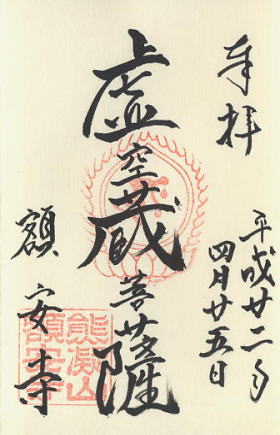 奉拝
平成廿二年
四月廿五日
虚空蔵菩薩
額安寺
熊凝山
額安寺